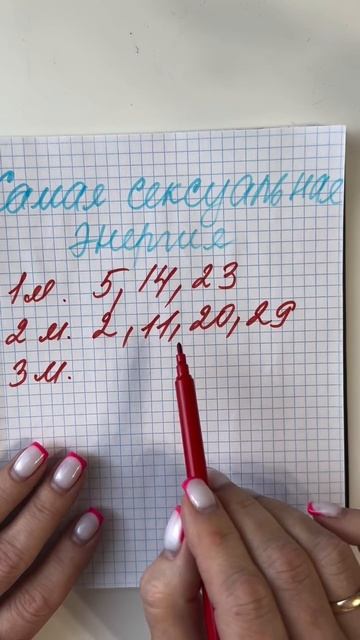 Самая сексуальная
энергия
1 м. 5, 14, 23
2 м. 2, 11, 20, 29
3 м.